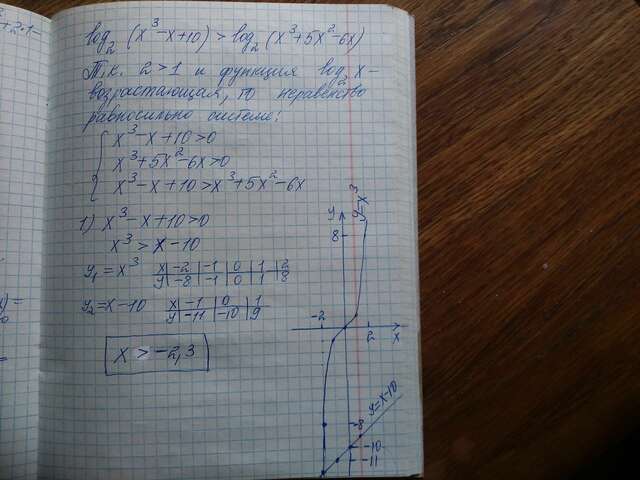 log₂ (x³-x+10) > log₂ (x³+5x²-6x)
Т.к. 2>1 и функция log₂ x-
возрастающая, то неравенство
равносильно системе:
x³-x+10>0
x³+5x²-6x>0
x³-x+10>x³+5x²-6x
1) x³-x+10>0
x³ > x-10
y₁=x³ x -2 -1 0 1 2
y -8 -1 0 1 8
y₂=x-10 x -1 0 1
y -11 -10 9
x > -2,3
y=x³
y
8
-2
2
x
y=x-10
-8
-10
-11